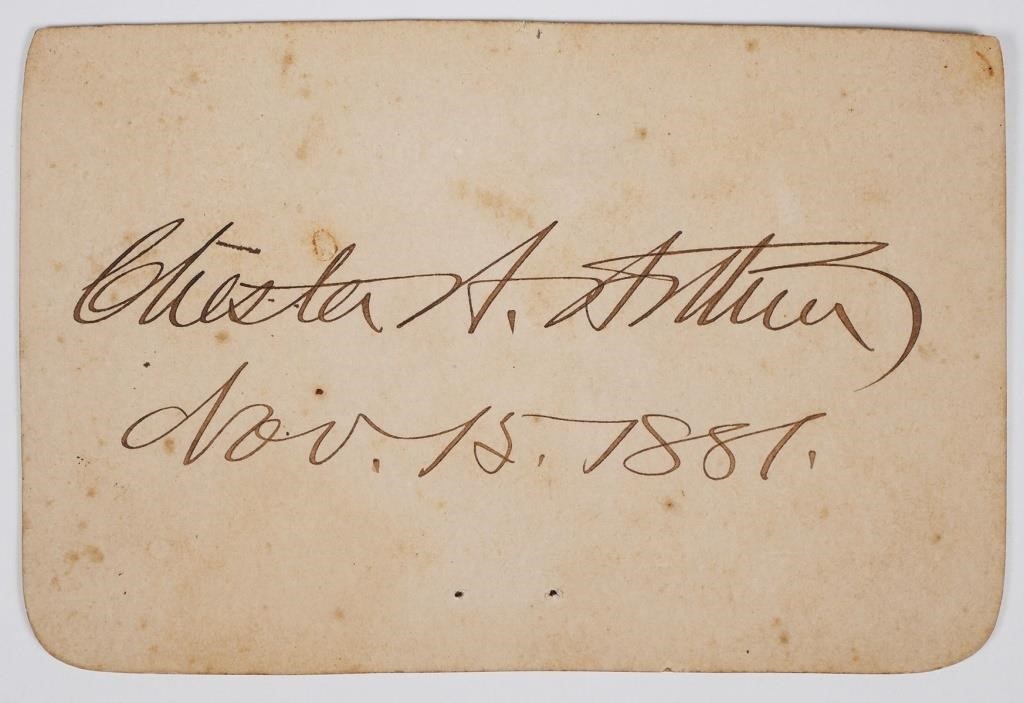 Chester A. Arthur
Nov. 15. 1881.